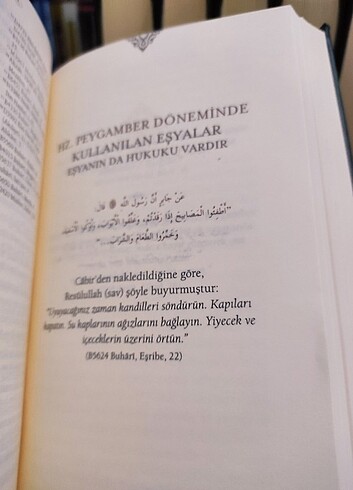 HZ. PEYGAMBER DÖNEMİNDE
KULLANILAN EŞYALAR
EŞYANIN DA HUKUKU VARDIR
عَنْ جَابِرٍ أَنَّ رَسُولَ اللّٰهِ ﷺ قَالَ:
"أَطْفِئُوا الْمَصَابِيحَ إِذَا رَقَدْتُمْ، وَغَلِّقُوا الْأَبْوَابَ، وَأَوْكُوا الْأَسْقِيَةَ
وَخَمِّرُوا الطَّعَامَ وَالشَّرَابَ..."
Câbir'den nakledildiğine göre,
Resûlullah (sav) şöyle buyurmuştur:
"Uyuyacağınız zaman kandilleri söndürün. Kapıları
kapatın. Su kaplarının ağızlarını bağlayın. Yiyecek ve
içeceklerin üzerini örtün."
(B5624 Buhârî, Eşribe, 22)